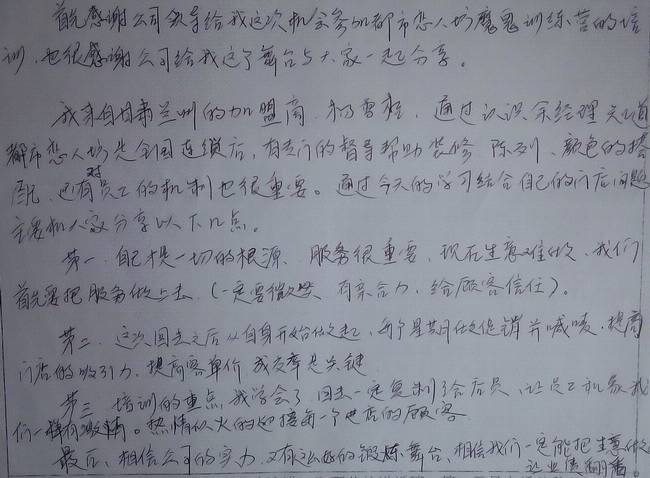 首先感谢公司领导给我这次机会参加都市恋人坊魔鬼训练营的培
训，也很感谢公司给我这个舞台与大家一起分享。
我来自甘肃兰州的加盟商 杨雪 ，通过认识余经理 知道
都市恋人坊是全国连锁店，有专门的督导帮助装修 陈列、颜色的搭
配，还有对员工的机制也很重要。通过今天的学习结合自己的门店问题
主要和大家分享以下几点。
第一 自己才是一切的根源、服务很重要，现在生意难做、我们
首先要把服务做上去（一定要微笑、有亲合力，给顾客信任）。
第二、这次回去之后从自身开始做起，每个星期做促销并喊唛，提高
门店的吸引力，提高客单价 成交率是关键
第三 培训的重点我学会了 回去一定复制给店员、让员工和象我
们一样有激情。热情似火的迎接每一个进店的顾客
最后、相信公司的实力，又有这么好的锻炼舞台、相信我们一定能把生意做
让业绩翻番。